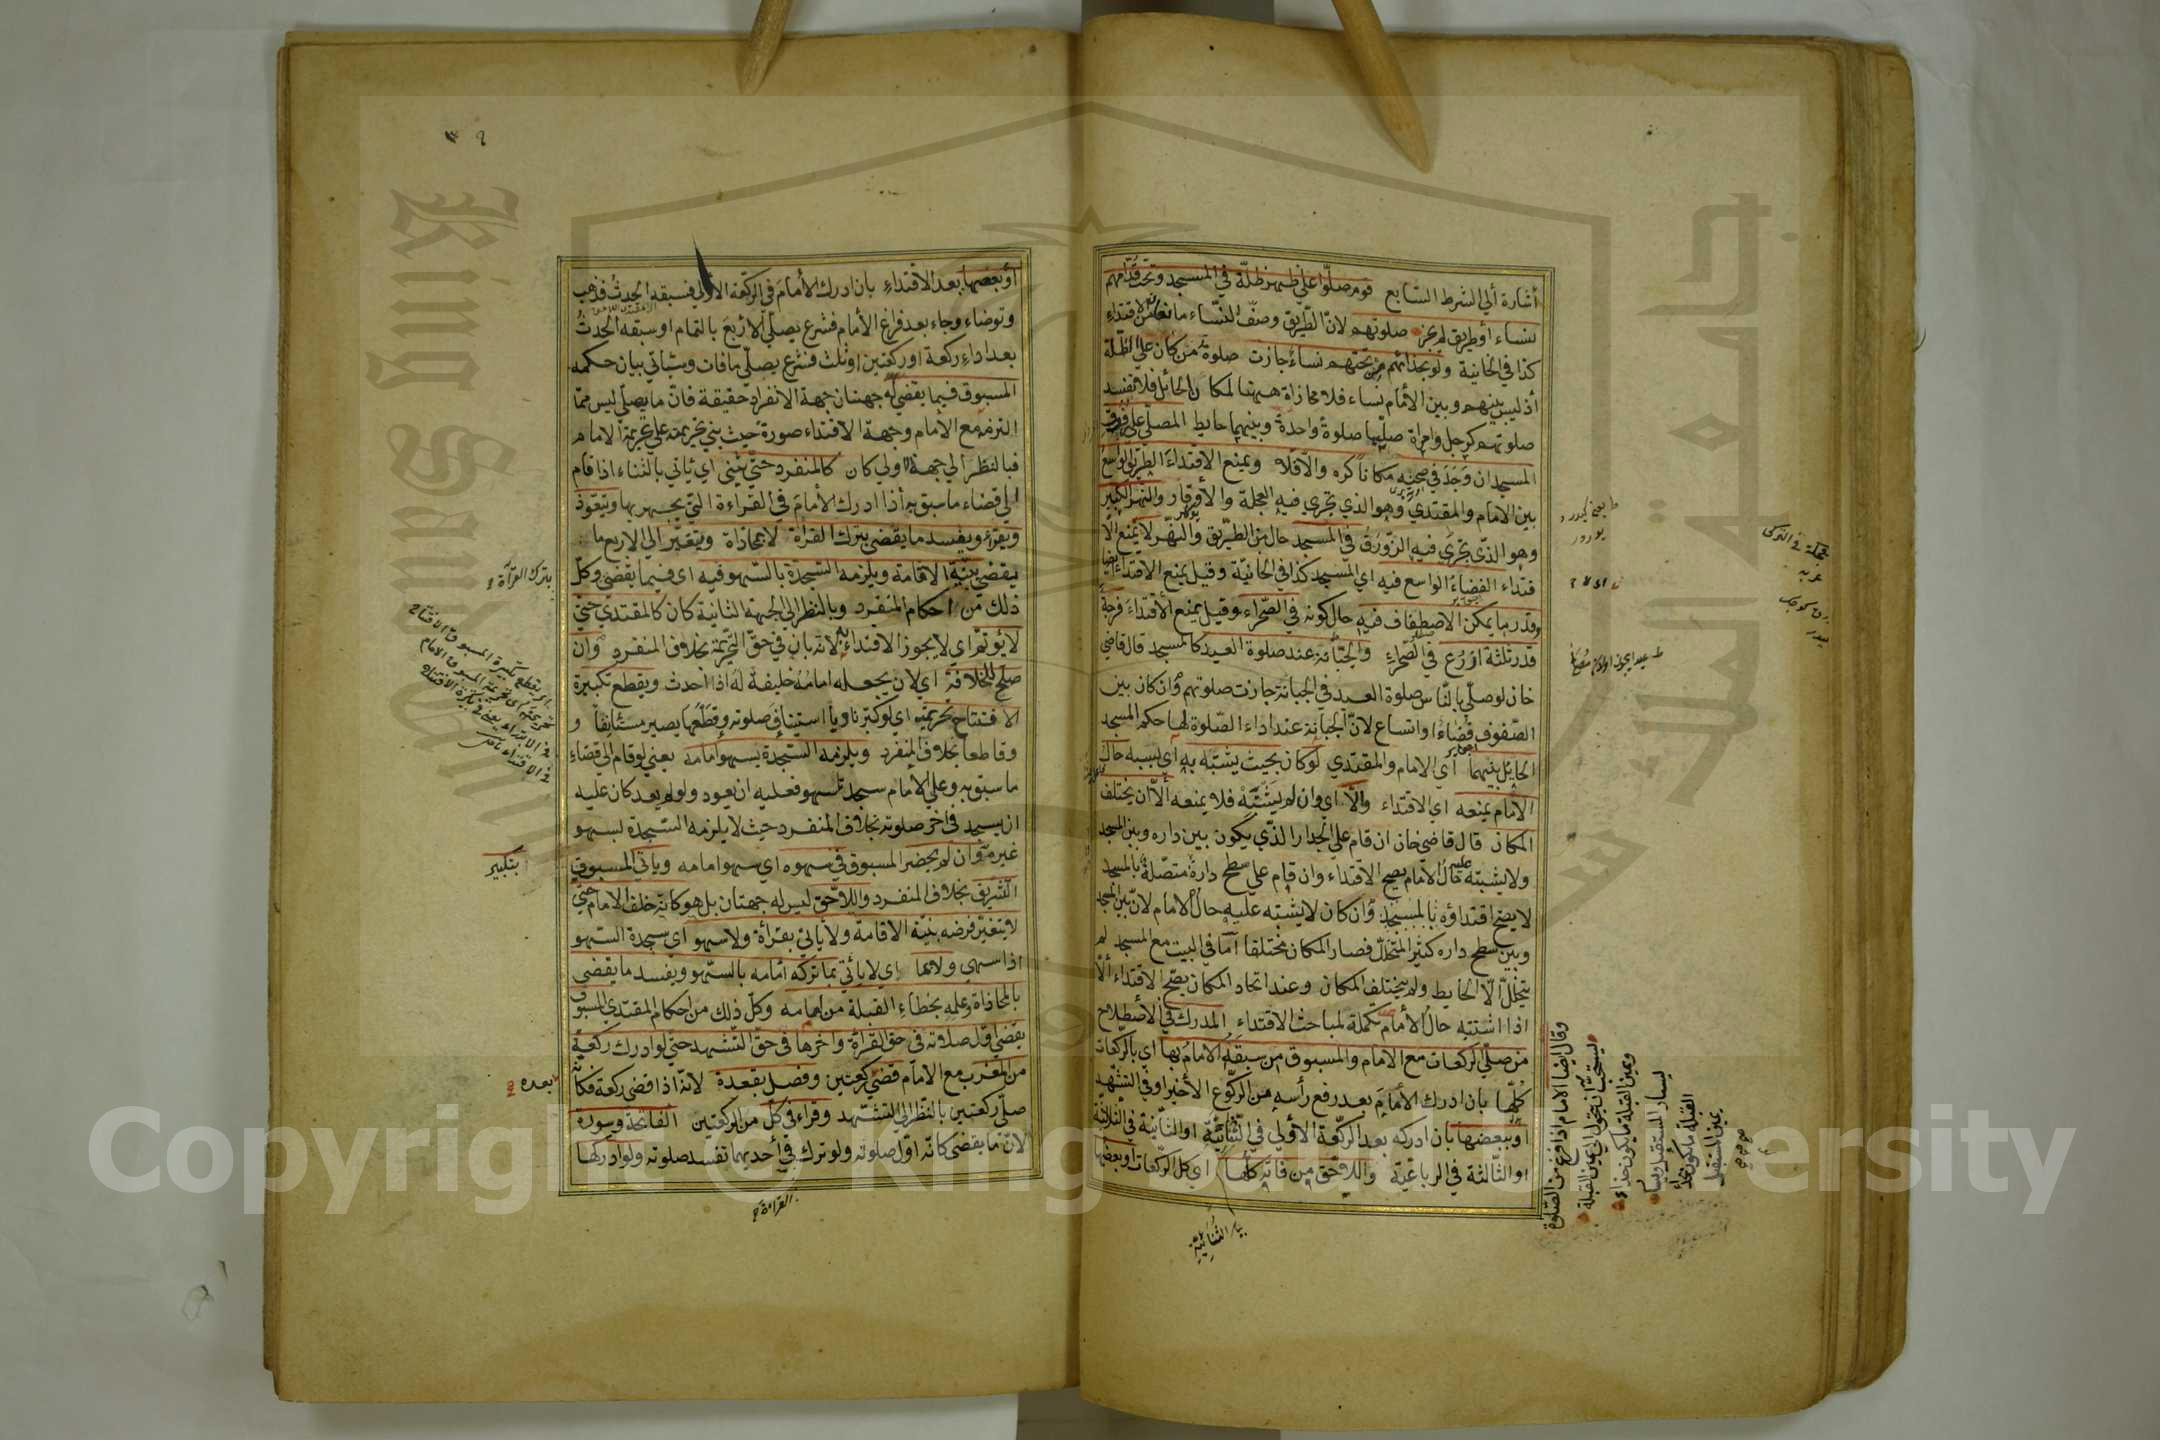 أشارة ألي الشرط السابع قوم صلوا علي ظهر ظلة في المسجد وتحت قدامهم
نساء أو طريق لم يجز صلوتهم لان الطريق وصف النساء مانع من الاقتداء
كذا في الخانية ولو بحذائهم من تحتهم نساء جازت صلوة من كان علي الظلة
أذ ليس بينهم وبين الأمام نساء فلا محاذاة هيهنا لمكان الحائل فلا تفسد
صلوتهم كرجل وامراة صليا صلوة واحدة وبينهما حايط المصلي علي فوق
المسجد ان وجد في صحنه مكانا كره والا فلا ويمنع الاقتداء الطريق الواسع
بين الامام والمقتدي وهو الذي تجري فيه العجلة والأوقار والنهر الكبير
وهو الذي تجري فيه الزورق في المسجد حال من الطريق والنهر لا يمنع الا
قتداء الفضاء الواسع فيه اي المسجد كذا في الخانية وقيل يمنع الاقتداء ايضا
وقدر ما يمكن الاصطفاف فيه حال كونه في الصحراء وقيل يمنع الأقتداء فرجة
قدر ثلثة اذرع في الصحراء والجبانة عند صلوة العيد كالمسجد قال قاضي
خان لو صلي بالناس صلوة العيد في الجبانة جازت صلوتهم وان كان بين
الصفوف فضاء او اتساع لان الجبانة عند اداء الصلوة لها حكم المسجد
الحايل بينهما أي الامام والمقتدي لو كان بحيث يشتبه به اي بسببه حال
الأمام يمنعه اي الاقتداء والا اي وان لم يشتبه فلا يمنعه الا ان يختلف
المكان قال قاضي خان ان قام علي الجدار الذي يكون بين داره وبين المسجد
ولا يشتبه عليه حال الامام يصح الاقتداء وان قام علي سطح داره متصلة بالمسجد
لا يصح اقتداؤه بالمسجد وان كان لا يشتبه عليه حال الامام لان بين المسجد
وبين سطح داره كثير التخلل فصار المكان مختلفا أما في البيت مع المسجد لم
يتخلل الا الحايط ولم يختلف المكان وعند اتحاد المكان يصح الاقتداء الا
اذا اشتبه حال الأمام تكملة لمباحث الاقتداء المدرك في الأصطلاح
من صلي الركعات مع الامام والمسبوق من سبقه الامام بها اي بالركعات
كلها بان ادرك الأمام بعد رفع رأسه من الركوع الأخير او في التشهد
أو ببعضها بان ادركه بعد الركعة الأولي في الثنائية او الثانية في الثلاثية
او الثالثة في الرباعية واللاحق من فاته كلها اي كل الركعات أو بعضها
وقال ايضا الامام اذا فرغ من الصلوة
يستحب ان يتحول الي يمين القبلة
ويمين القبلة ما يكون حذاء
يسار المستقبل ويسار
القبلة ما يكون بحذاء
يمين المستقبل
بيان الثنائية
أو بعضها بعد الاقتداء بان ادرك الأمام في الركعة الأولي فسبقه الحدث فذهب
وتوضاء وجاء بعد فراغ الأمام فشرع يصلي الاربع بالتمام او سبقه الحدث
بعد اداء ركعة او ركعتين او ثلث فشرع يصلي ما فات وسيأتي بيان حكمه
المسبوق فيما يقضي له جهتان جهة الانفراد حقيقة فان ما يصلي ليس مما
التزمه مع الامام وجهة الاقتداء صورة حيث بني تحريمته علي تحريمة الامام
فبالنظر الي جهة الاولي كان كالمنفرد حتي يثني اي يأتي بالثناء اذا قام
الي قضاء ما سبق به أذا ادرك الأمام في القراءة التي يجهر بها ويتعوذ
ويقرء ويفسد ما يقضي بترك القرأة لا بمحاذاة ويتغير الي الاربع ما
يقضي بنية الاقامة ويلزمه السجدة بالسهو فيه اي فيما يقضي وكل
ذلك من احكام المنفرد وبالنظر الي الجهة الثانية كان كالمقتدي حتي
لا يؤتم اي لا يجوز الاقتداء به لانه بان في حق التحريمة بخلاف المنفرد وان
صلح للخلافة اي لان يجعله امامه خليفة له اذا أحدث ويقطع تكبيرة
الافتتاح تحريمته اي لو كبر ناويا استينافي صلوته وقطعها يصير مستأنفا و
وقاطعا بخلاف المنفرد ويلزمه السجدة بسهو أمامه يعني لو قام الي قضاء
ما سبق به وعلي الامام سجدتا سهو فعليه ان يعود ولو لم يعد كان عليه
ان يسجد في أخر صلوته بخلاف المنفرد حيث لا يلزمه السجدة بسهو
غيره وان لم يحضر المسبوق في سهوه اي سهو امامه ويأتي المسبوق
التشريق بخلاف المنفرد واللاحق ليس له جهتان بل هو كانه خلف الامام حتي
لا يتغير فرضه بنية الاقامة ولا يأتي بقرأة ولا سهو اي سجدة السهو
اذا سهي ولا بما اي لا يأتي بما تركه أمامه بالسهو ويفسد ما يقضي
بالمحاذاة وعلمه بخطاء القبلة من امامه وكل ذلك من احكام المقتدي المسبوق
يقضي اول صلاته في حق القرأة واخرها في حق التشهد حتي لو ادرك ركعة
من المغرب مع الامام قضي ركعتين وفصل بقعدة لانه اذا قضي ركعة فكأنه
صلي ركعتين بالنظر الي التشهد وقراء في كل من الركعتين الفاتحة وسورة
لان ما يقضي كانه اول صلوته ولو ترك في أحديهما تفسد صلوته ولو ادركها
بترك القرأة
بتكبير
بعده
القراءة
Copyright © King Saud University
King Saud University
جامعة الملك سعود
1957